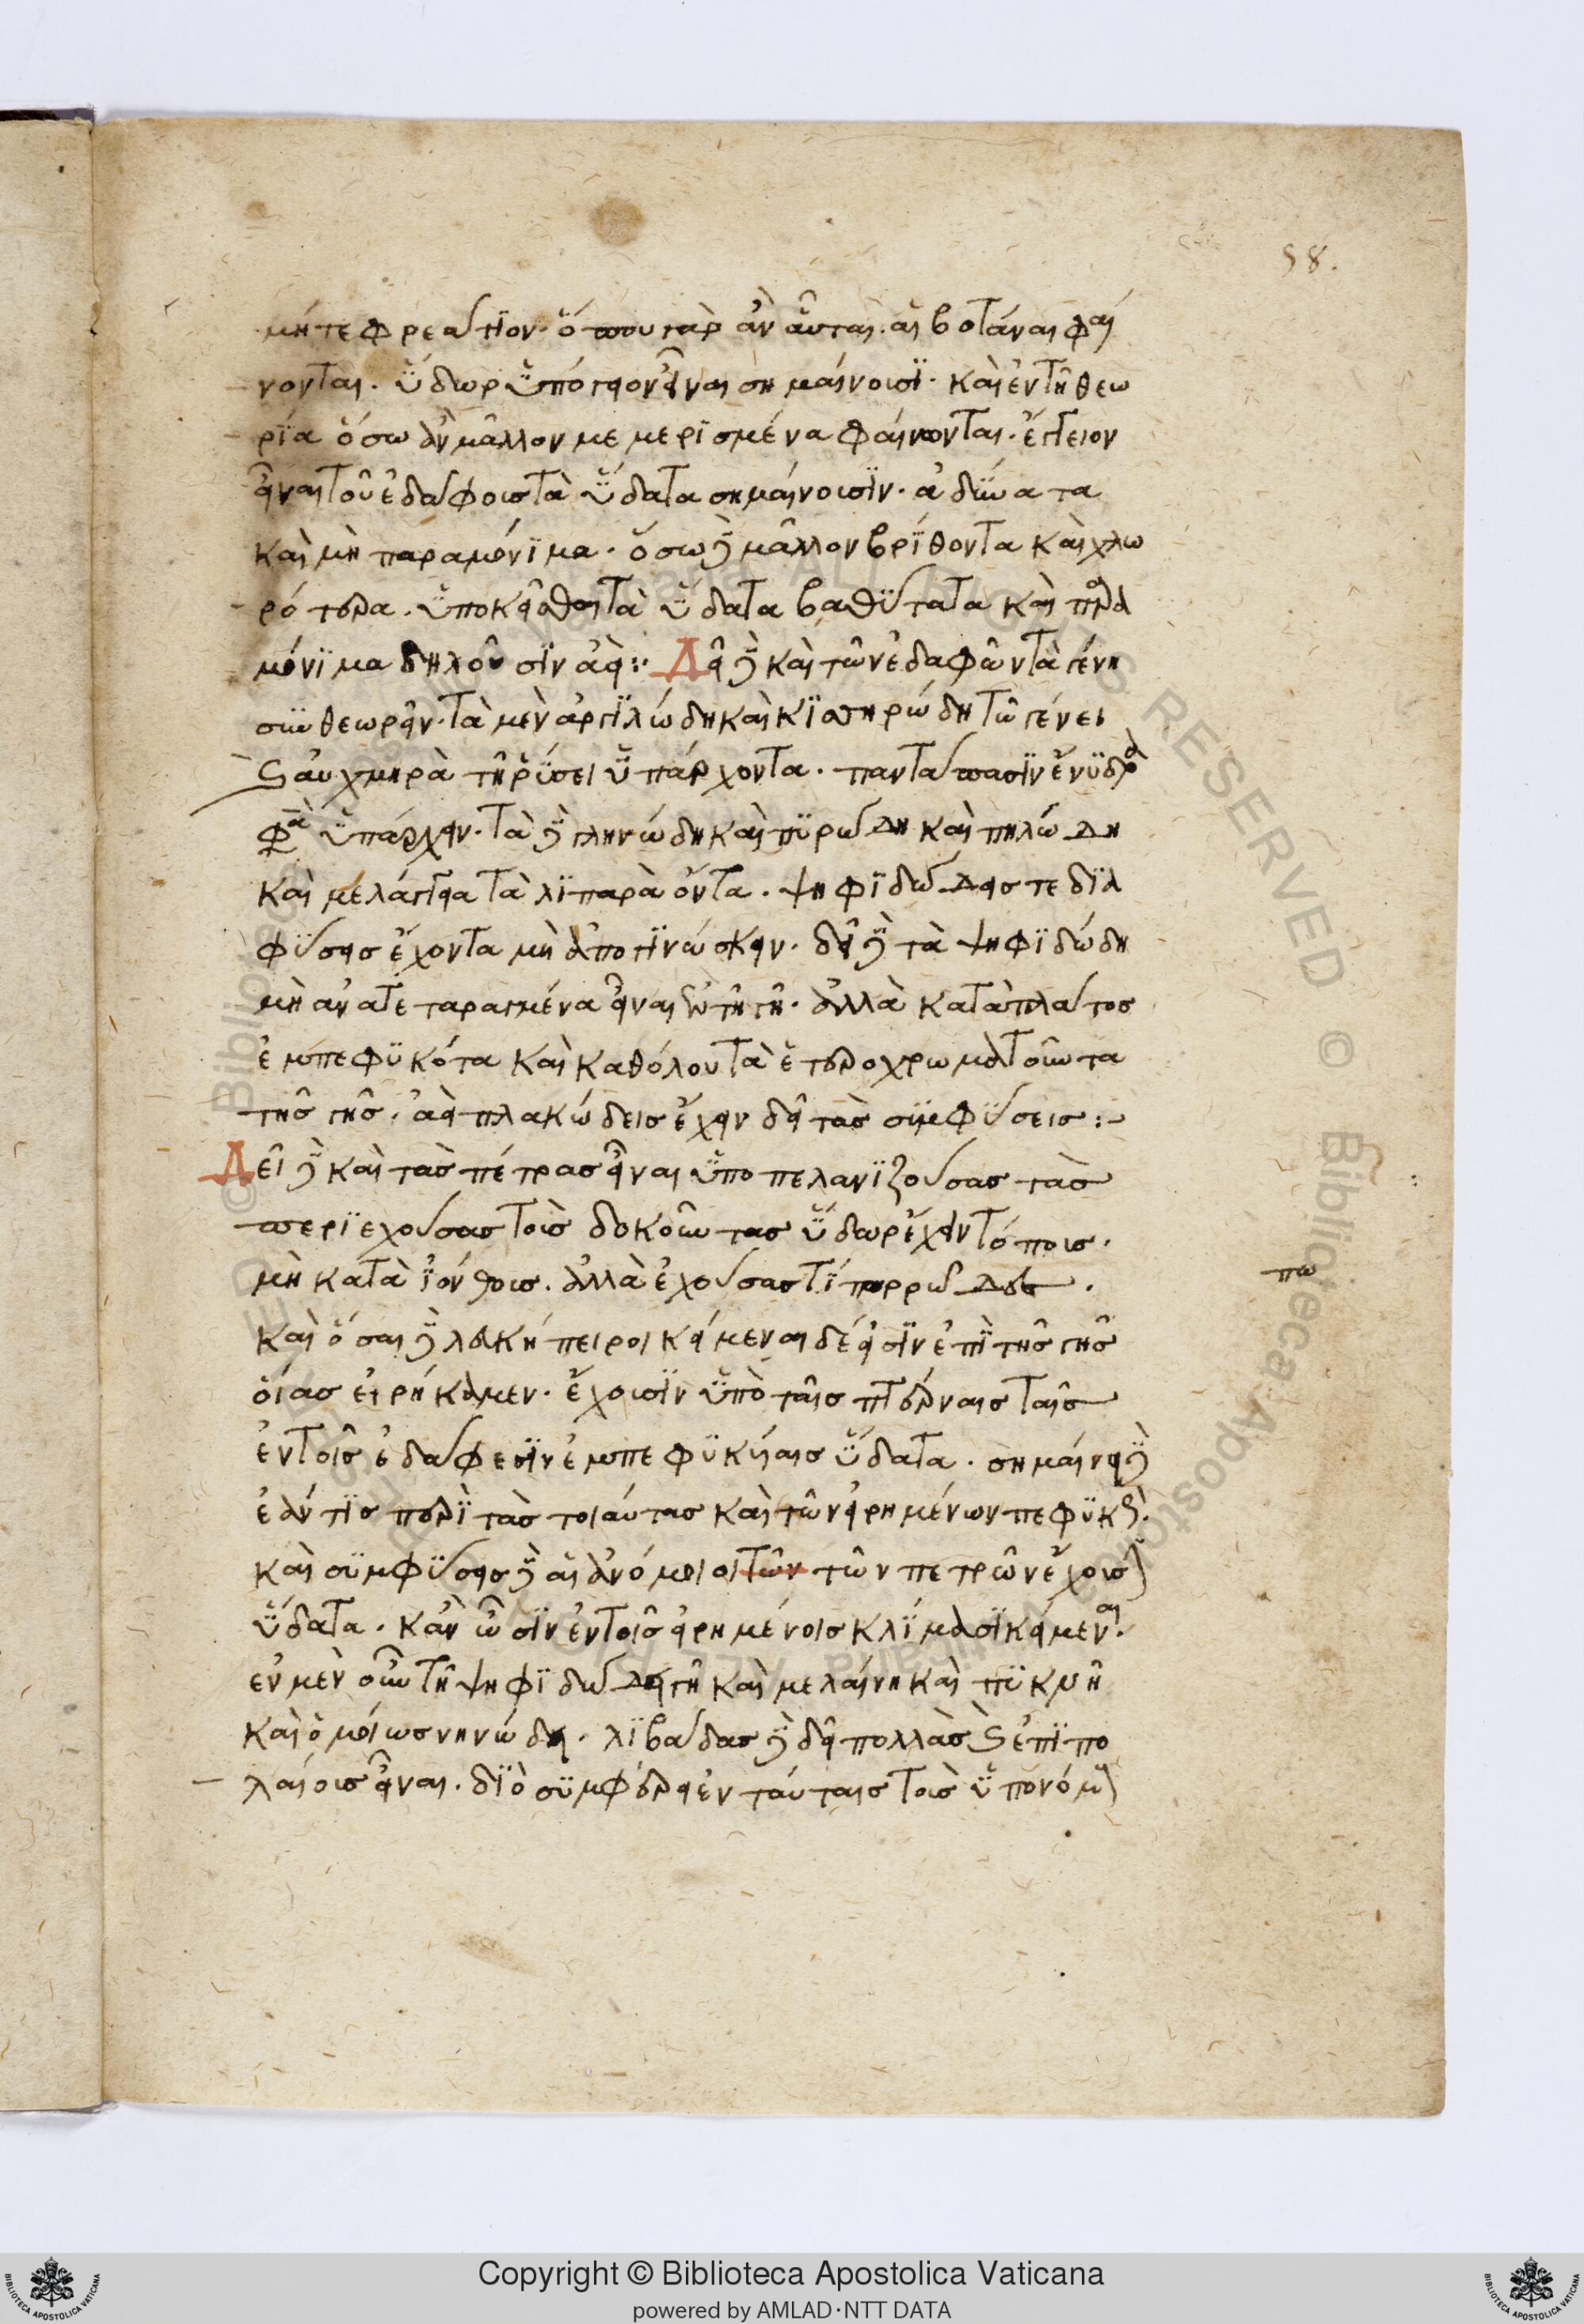 58.
μήτε φρεάτιον· ὅπου γὰρ ἂν αὗται αἱ βοτάναι φαί
νονται. ὕδωρ ὑπόγειον εἶναι σημαίνουσι· καὶ ἐν τῆ θεω
ρία ὅσω ἂν μᾶλλον μεμερισμένα φαίνονται. ἔγγειον
εἶναι τοῦ ἐδάφους τὰ ὕδατα σημαίνουσϊν· ἀδύνατα
καὶ μὴ παραμόνιμα. ὅσω δὲ μᾶλλον βρίθοντα καὶ χλω
ρότερα. ὑποκεῖσθαι τὰ ὕδατα βαθύτατα καὶ παρα
μόνιμα δηλοῦσϊν ἀεὶ :· Δεῖ δὲ καὶ τῶν ἐδαφῶν τὰ γένη
συνθεωρεῖν. τὰ μὲν ἀργιλώδη καὶ κισσηρώδη τῶ γένει
καὶ αὐχμηρὰ τῆ φύσει ὑπάρχοντα. παντάπασιν ἔνυδρα
ὑπάρχειν. τὰ δὲ γληνώδη καὶ πυρώδη καὶ πηλώδη
καὶ μελάγγεια τὰ λιπαρὰ ὄντα. ψηφιδώδεις τε δια
φύσεις ἔχοντα μὴ ἀπογινώσκειν. δεῖ δὲ τὰ ψηφιδώδη
μὴ ἀνατεταραγμένα εἶναι ἐν τῆ γῆ. ἀλλὰ κατὰ πλάτος
ἐμπεφυκότα καὶ καθόλου τὰ ἑτεροχρωματοῦντα
τῆς γῆς. ἀεὶ πλακώδεις ἔχειν δεῖ τὰς συμφύσεις :·
Δεῖ δὲ καὶ τὰς πέτρας εἶναι ὑποπελανιζούσας τὰς
περιεχούσας τοὺς δοκοῦντας ὕδωρ ἔχειν τόπους.
μὴ κατὰ ἰόνθους. ἀλλὰ ἐχούσας τί πορρῶδες.
πω
καὶ ὅσαι δὲ λευκήπειροι κείμεναι δέ εἰσϊν ἐπὶ τῆς γῆς
οἵας εἰρήκαμεν. ἔχουσϊν ὑπὸ ταῖς πτέρναις ταῖς
ἐν τοῖς ἐδάφεσϊν ἐμπεφυκυίαις ὕδατα. σημαίνει δὲ
ἐάν τις περὶ τὰς τοιαύτας καὶ τῶν εἰρημένων πεφύκη.
καὶ συμφύσεις δὲ αἱ ἀνόμοιοι τῶν τῶν πετρῶν ἔχουσιν
ὕδατα. κἂν ὦσϊν ἐν τοῖς εἰρημένοις κλίμασι κείμεναι.
ἐν μὲν οὖν τῆ ψηφιδώδει γῆ καὶ μελαίνη καὶ πυκνῆ
καὶ ὁμοίως νηνώδη. λιβάδας δὲ δεῖ πολλὰς καὶ ἐπιπο
λαίους εἶναι. διὸ συμφέρει ἐν ταύταις τοὺς ὑπονόμους
Copyright © Biblioteca Apostolica Vaticana
powered by AMLAD·NTT DATA